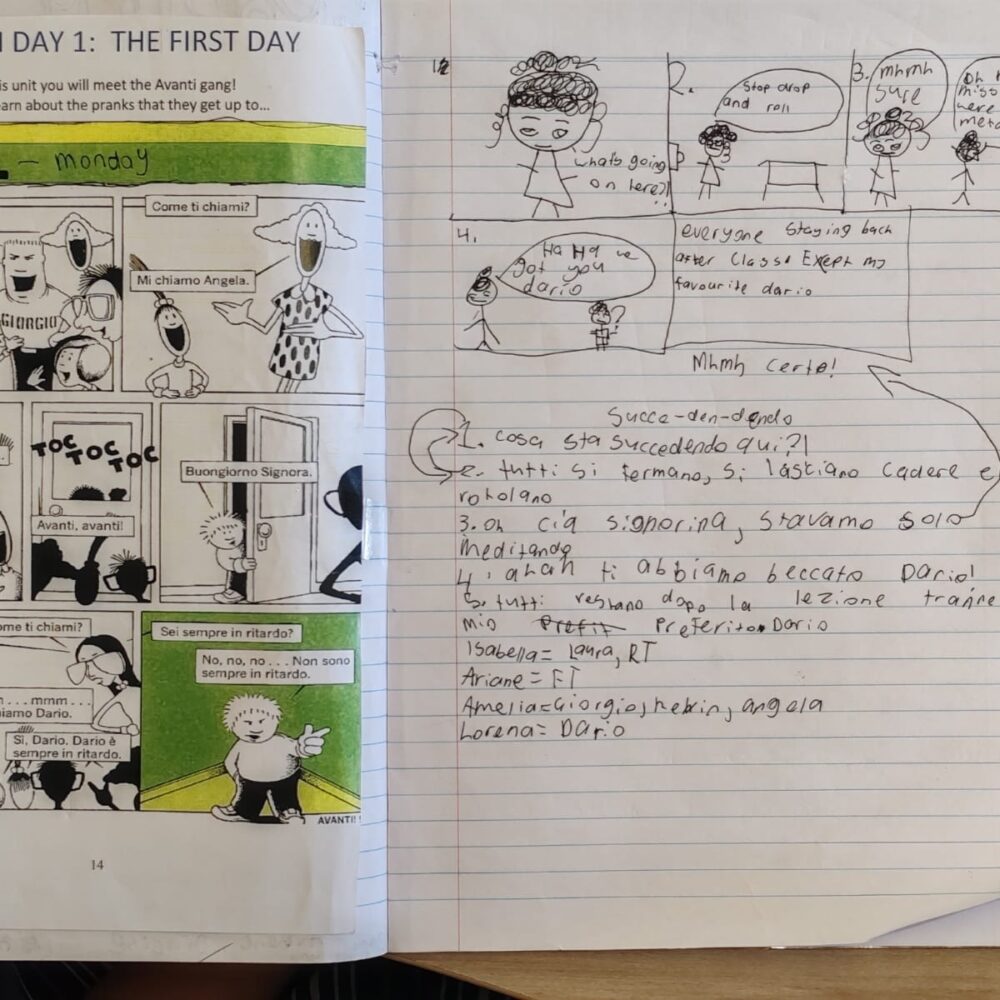 DAY 1: THE FIRST DAY
is unit you will meet the Avanti gang!
earn about the pranks that they get up to...
- monday
Come ti chiami?
Mi chiamo Angela.
GIORGIO
TOC TOC TOC
Avanti, avanti!
Buongiorno Signora.
ome ti chiami?
mmm...
iamo Dario.
Sì, Dario. Dario è
sempre in ritardo.
Sei sempre in ritardo?
No, no, no... Non sono
sempre in ritardo.
AVANTI!
14
whats going
on here?!
2.
Stop drop
and roll
3.
mhmh
sure
Oh
miss
were
4.
Ha Ha we
got you
dario
everyone staying back
after class. Except my
favourite dario
Mhmh certo!
Succe-den-dendo
1. cosa sta succedendo qui?!
2. tutti si fermano, si lastiano cadere e
rotolano
3. oh cia signorina, stavamo solo
meditando
4. ahah ti abbiamo beccato Dario!
5. tutti restano dopo la lezione tranne
mio Prefit Preferito Dario
Isabella = Laura, RT
Ariane = FT
Amelia = Giorgio, kevin, angela
Lorena = Dario